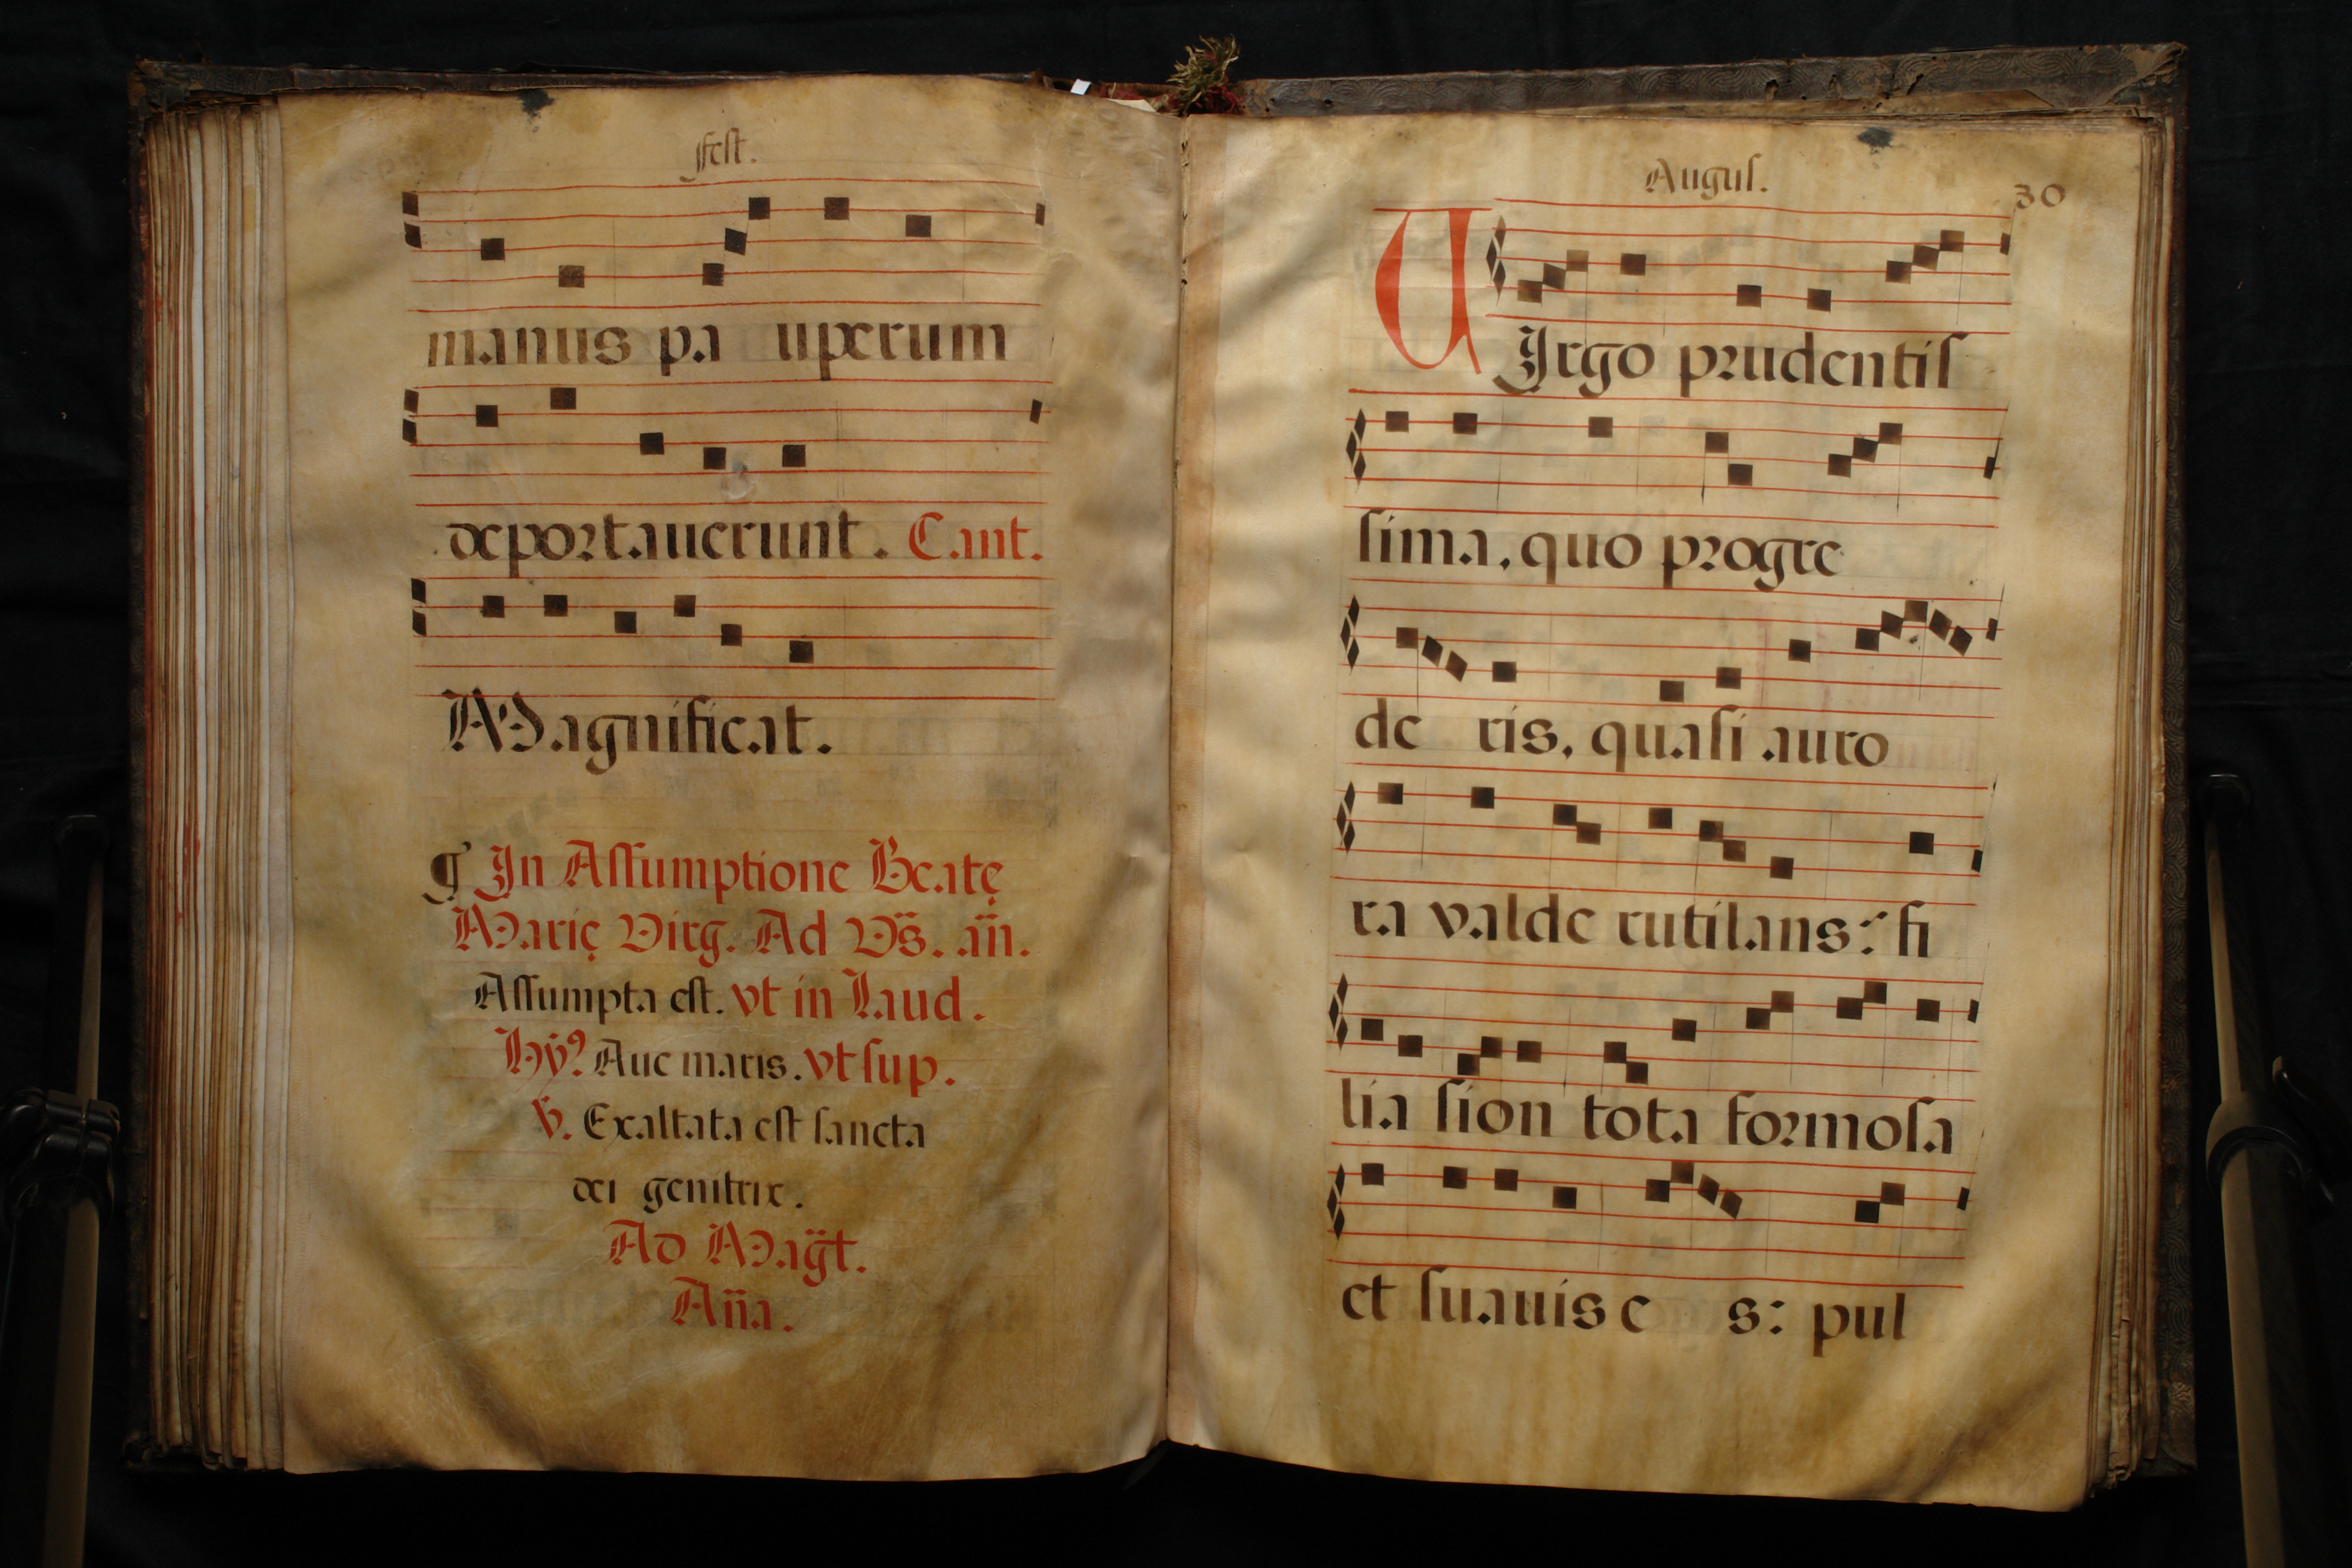 Fest.
manus pa uperum
deportauerunt. Cant.
Magnificat.
¶ In Assumptione Beatę
Marię Virg. Ad Vs̈. an̈.
Assumpta est. vt in Laud.
Hÿ? Aue maris. vt sup.
℣. Exaltata est sancta
dei genitrix.
Ad Mag̈t.
An̈a.
Augus.
30
VIrgo prudentis
sima, quo progre
de ris, quasi auro
ra valde rutilans: fi
lia sion tota formosa
et suauis e s: pul